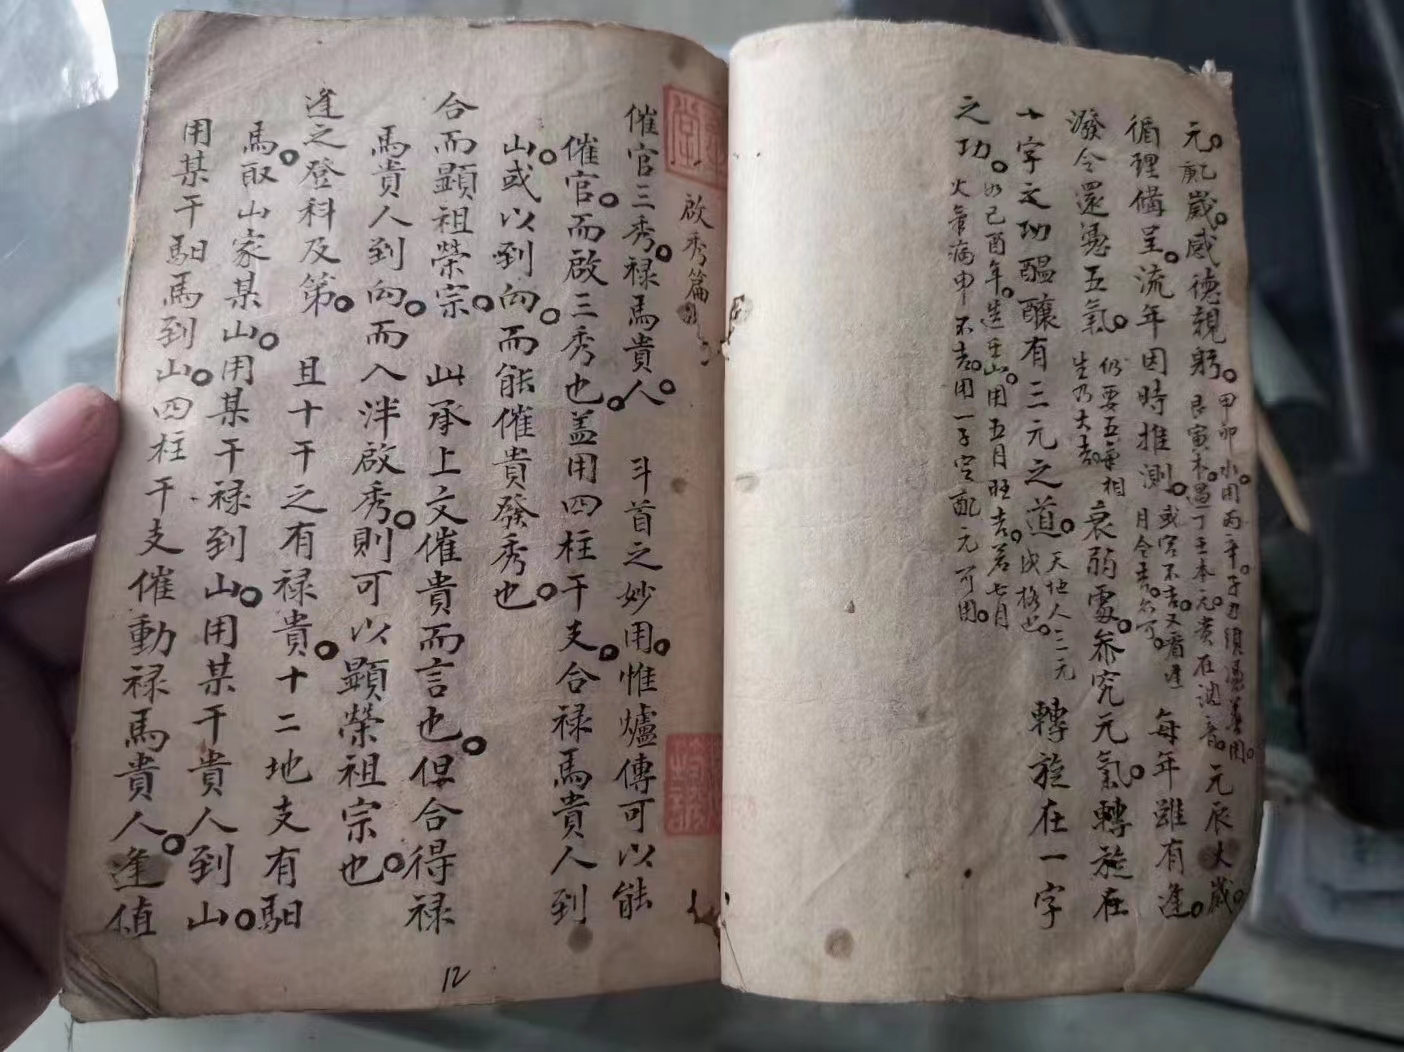 元亂歲。威德親躬。甲卯小。用丙辛子丑須湯蓋用。艮寅木。遇丁壬本元貴在訣彥。元辰大歲。
循理偹呈。流年因時推測。或宮不吉。又看逢月令吉。亦可。每年雖有逢。
潑令還湯五氣。仍要五氣相生乃大吉。衰弱處。叅究元氣。轉旋在
十字之功醖釀有三元之道。天地人三元成格也。轉旋在一字
之功。如己酉年。造壬山。用五月旺吉。若七月火氣病申不吉。用一子字配元可用。
啟秀篇
催官三秀。祿馬貴人。斗首之妙用。惟爐傳可以能
催官。而啟三秀也。盖用四柱干支。合祿馬貴人到
山。或以到向。而能催貴發秀也。
合而顯祖榮宗。此承上文催貴而言也。但合得祿
馬貴人到向。而入泮啟秀。則可以顯榮祖宗也。
逢之登科及第。且十干之有祿貴。十二地支有馹
馬。取山家某山。用某干祿到山。用某干貴人到山。
用某干馹馬到山。四柱干支催動祿馬貴人。逢值
12